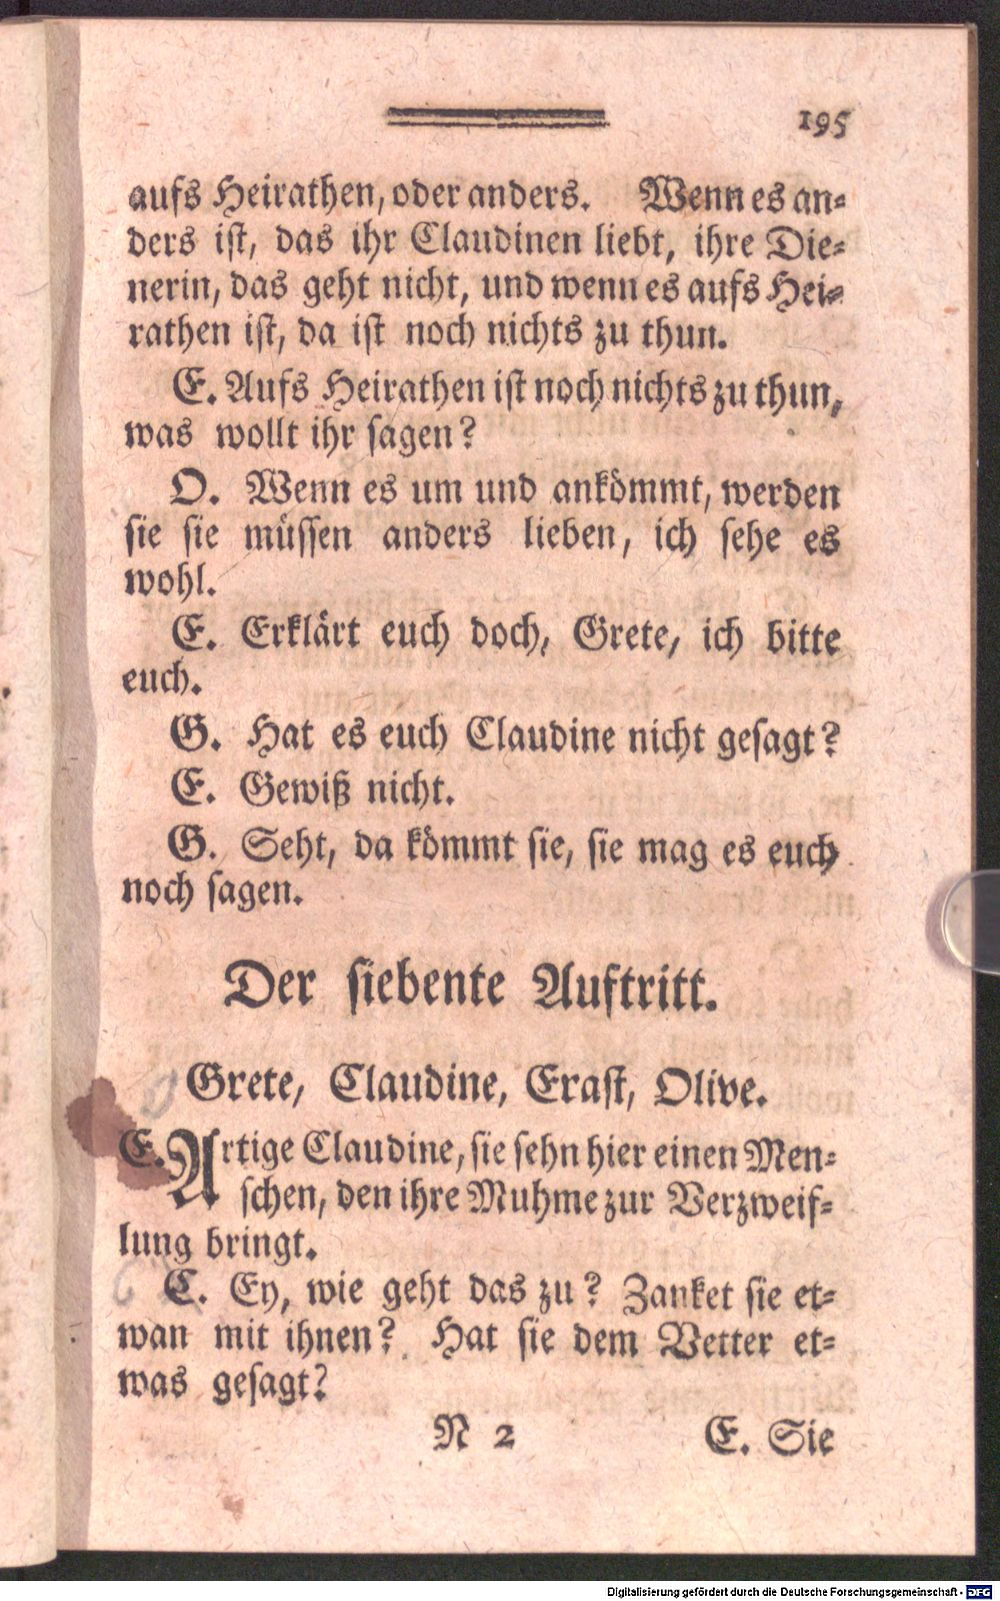 195
aufs Heirathen, oder anders. Wenn es an-
ders ist, das ihr Claudinen liebt, ihre Die-
nerin, das geht nicht, und wenn es aufs Hei-
rathen ist, da ist noch nichts zu thun.
E. Aufs Heirathen ist noch nichts zu thun,
was wollt ihr sagen?
O. Wenn es um und ankömmt, werden
sie sie müssen anders lieben, ich sehe es
wohl.
E. Erklärt euch doch, Grete, ich bitte
euch.
G. Hat es euch Claudine nicht gesagt?
E. Gewiß nicht.
G. Seht, da kömmt sie, sie mag es euch
noch sagen.
Der siebente Auftritt.
Grete, Claudine, Erast, Olive.
E. Artige Claudine, sie sehn hier einen Men-
schen, den ihre Muhme zur Verzweif-
lung bringt.
C. Ey, wie geht das zu? Zanket sie et-
wan mit ihnen? Hat sie dem Vetter et-
was gesagt?
N 2 E. Sie
Digitalisierung gefördert durch die Deutsche Forschungsgemeinschaft - DFG